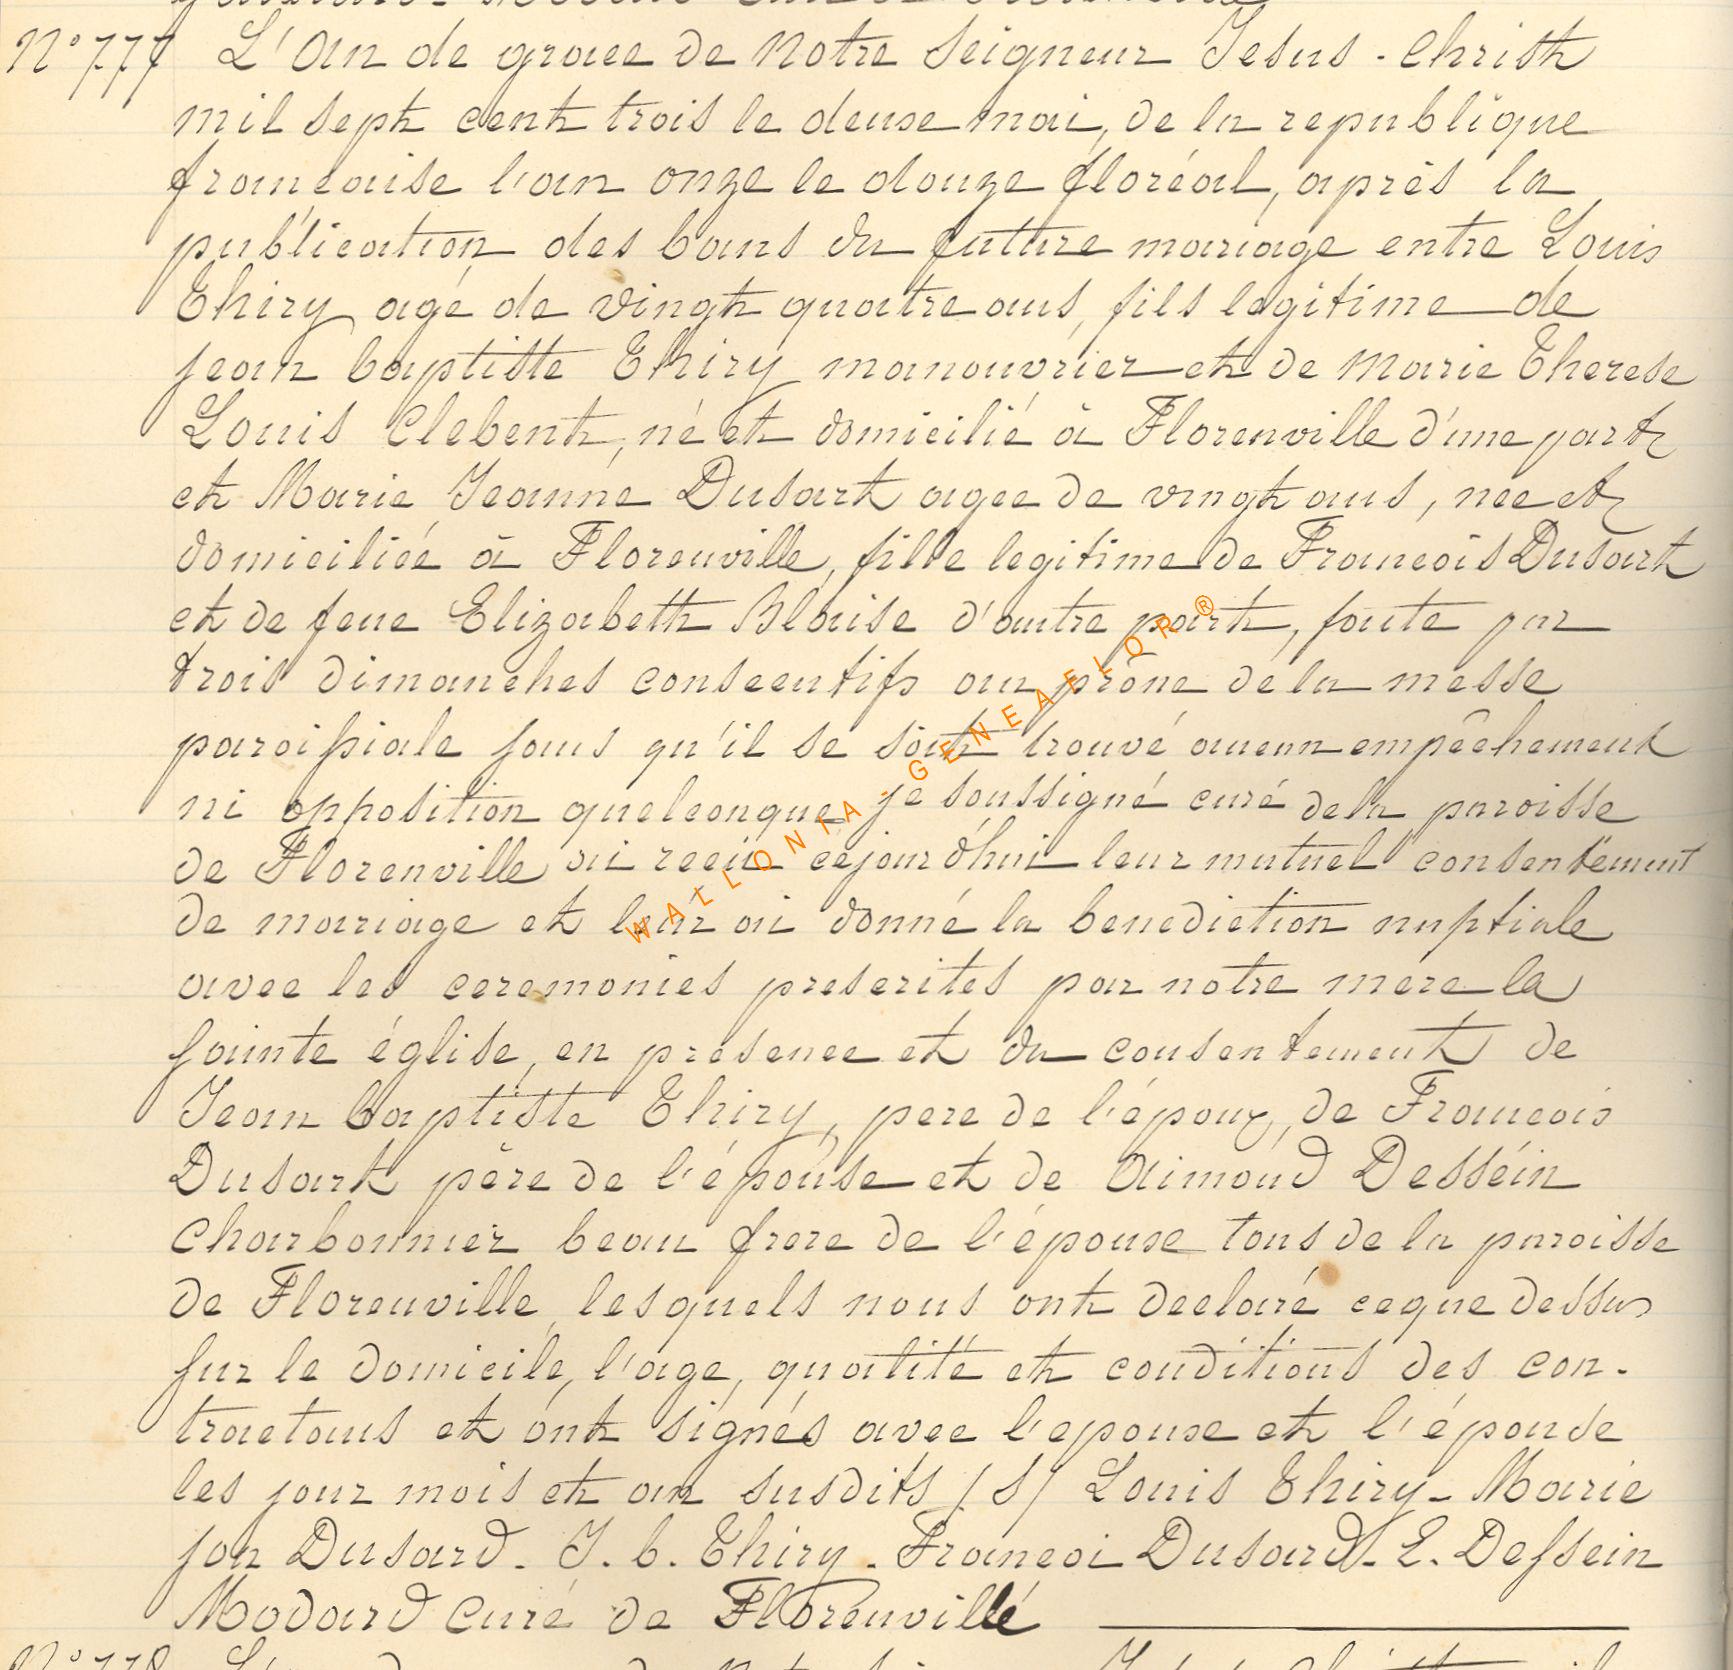 N° 777 L'an de grace de Notre Seigneur Jesus-Christ
mil sept cent trois le deuxe mai, de la republique
francaise l'an onze le douze floréal, après la
publication des bans du futture mariage entre Louis
Thiry agé de vingt quatre ans, fils legitime de
jean baptiste Thiry manouvrier et de Marie Therese
Louis Clebent, né et domicilié à Florenville d'une part
et Marie Jeanne Dusart agee de vingt ans, neé et
domiciliée à Florenville, fille legitime de Francois Dusart
et de feue Elizabeth Blaise d'autre part, faite par
trois dimanches consecutifs au prône de la messe
paroissiale sans qu'il se soit trouvé aucun empêchement
ni opposition quelconque je soussigné curé de la paroisse
de Florenville ai recu cejourd'hui leur mutuel consentement
de mariage et leur ai donné la benediction nuptiale
avec les ceremonies prescrites par notre mere la
sainte église, en presence et du consentement de
Jean baptiste Thiry, pere de l'époux, de Francois
Dusart père de l'épouse et de Aimond Desséin
Charbonnier beau frere de l'épouse tous de la paroisse
de Florenville, lesquels nous ont declaré ceque dessus
sur le domicile, l'age, qualité et conditions des con-
tractans et ont signés avec l'epouse et l'épouse
les jour mois et an susdits /S/ Louis Thiry - Marie
jon Dusard - J. b. Thiry - Francoi Dusard - E. Dessein
Modard Curé de Florenville
WALLONIA-GENEAFLOR ®